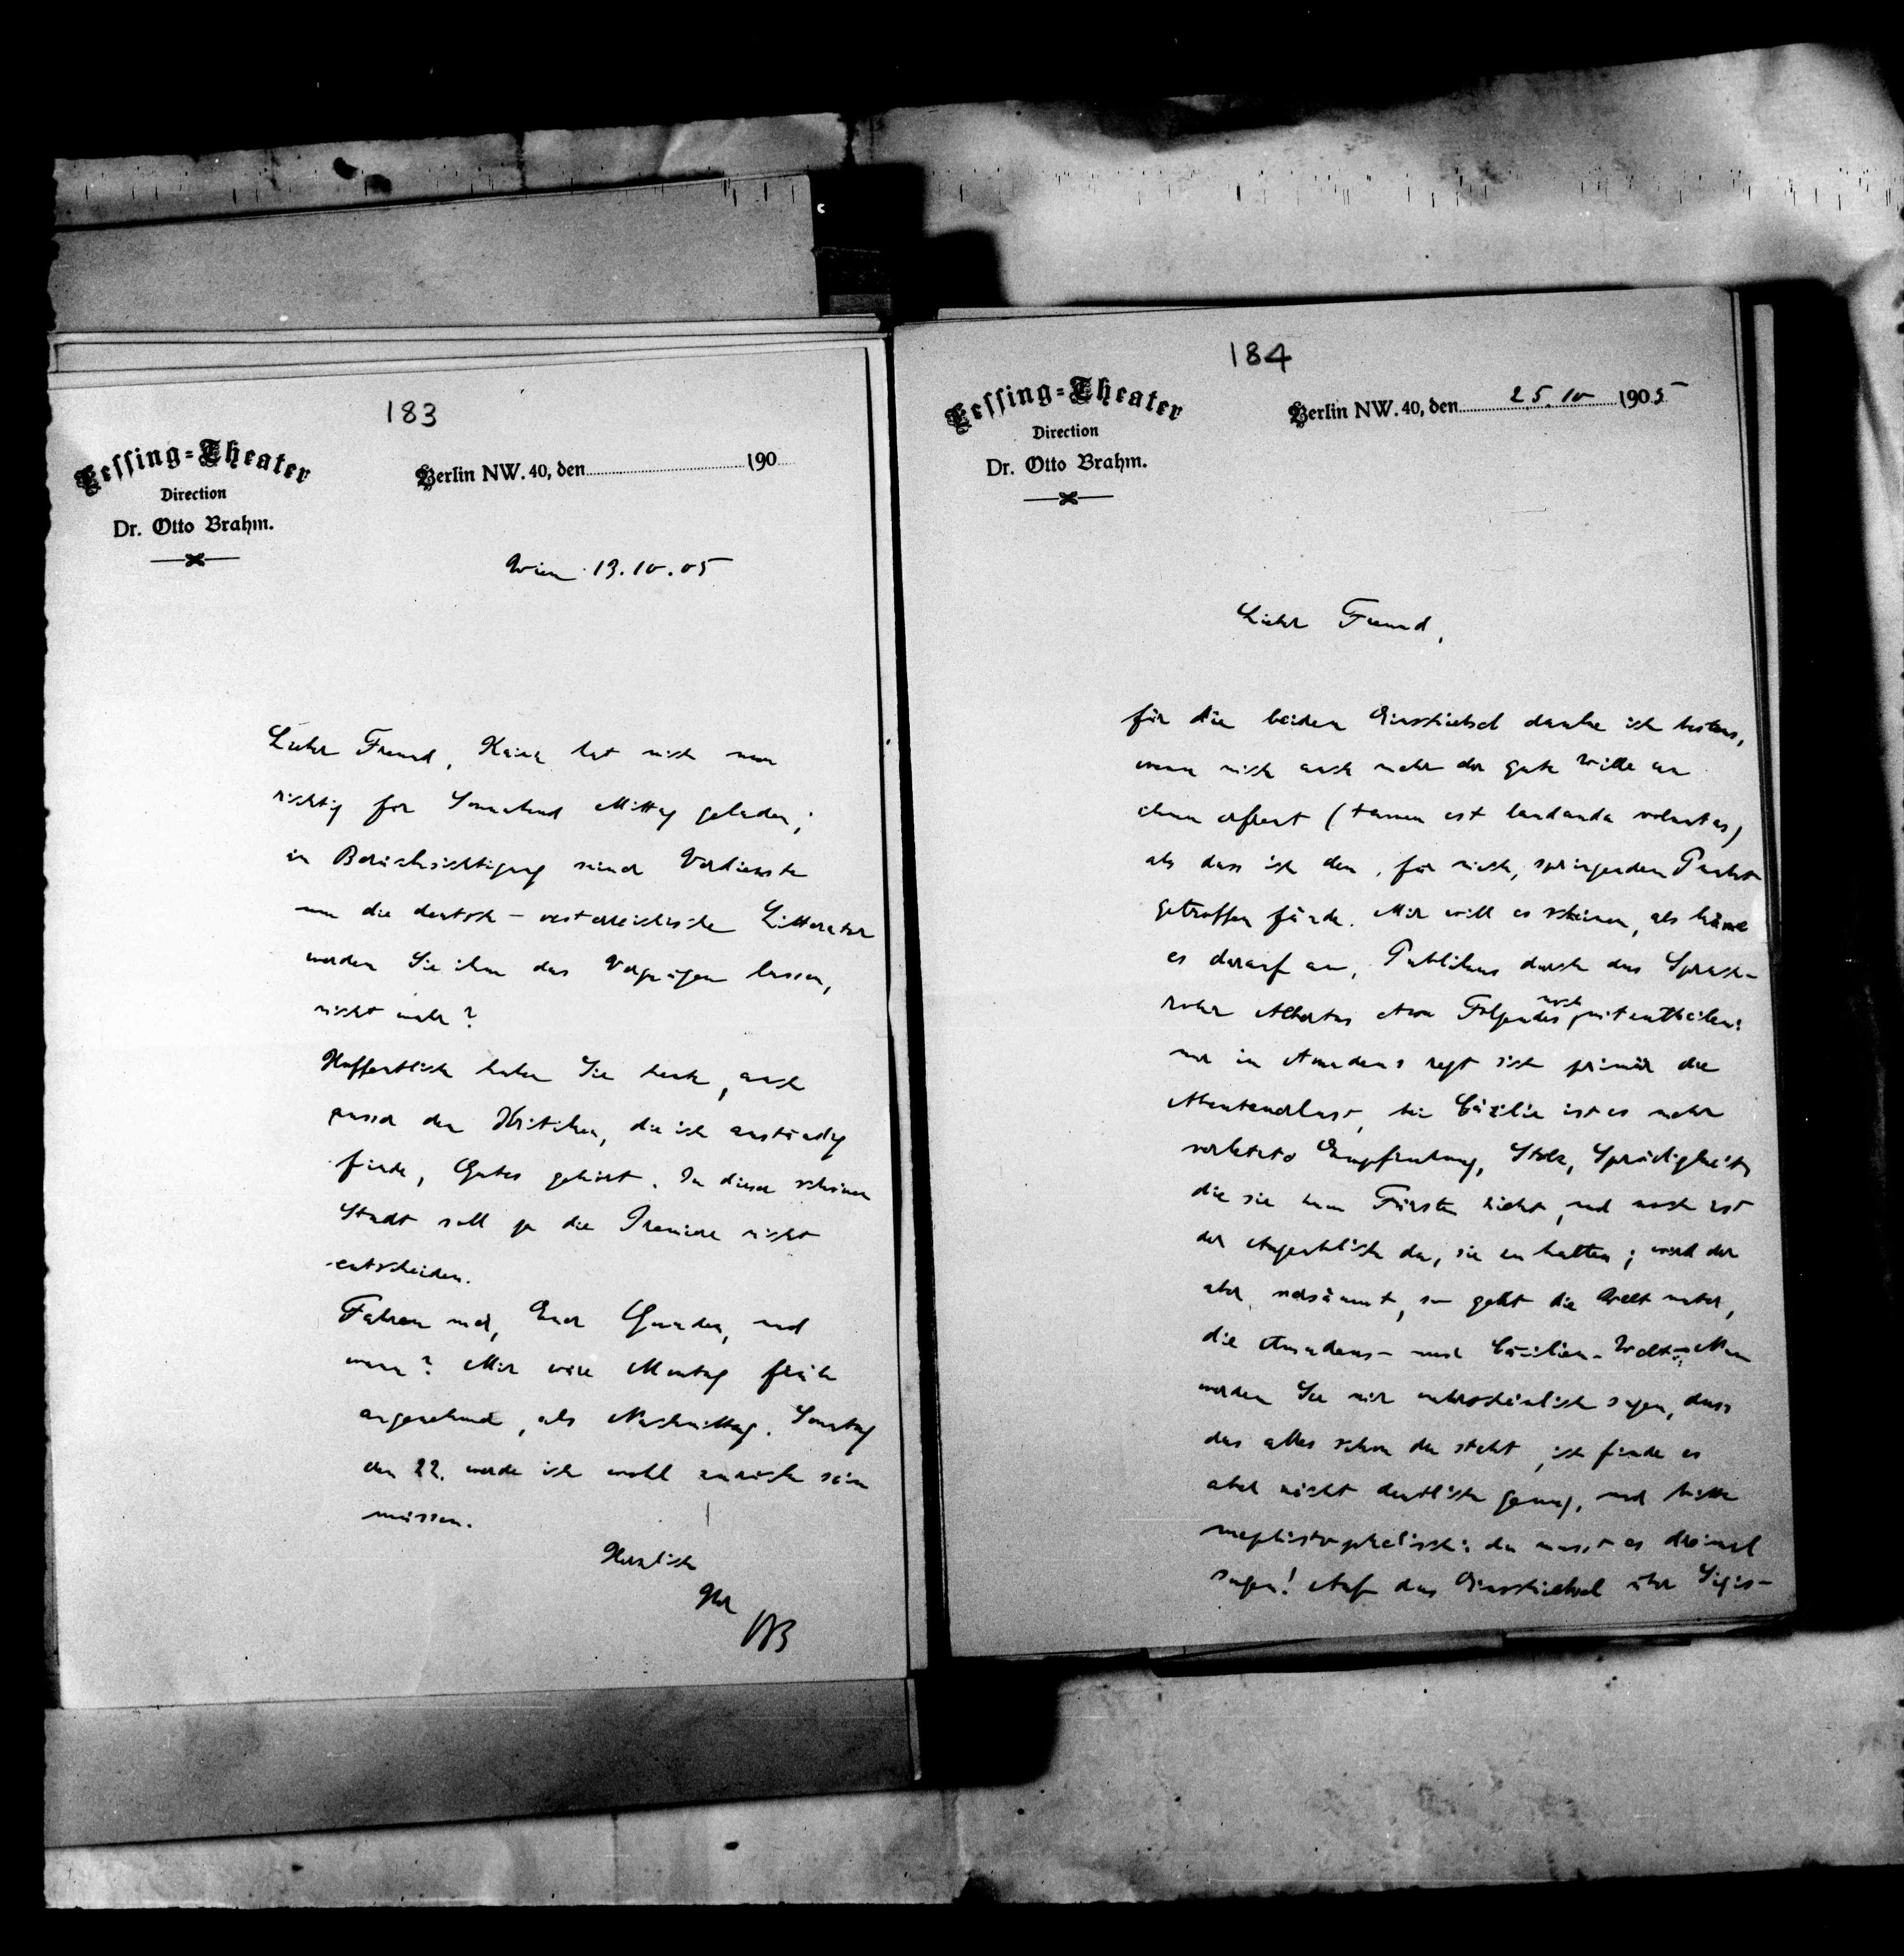 183
Lessing-Theater
Direction
Dr. Otto Brahm.
Berlin NW. 40, den 190
Wien 13.10.05
Lieber Freund, Kainz hat mich nun
richtig für Sonnabend Mittag geladen;
in Berücksichtigung seiner Verdienste
um die deutsch-oesterreichische Litteratur
werden Sie ihm das Vergnügen lassen,
nicht wahr?
Hoffentlich haben Sie heute, auch
ausser den Kritiken, die ich anständig
finde, Gutes gehört. In dieser schönen
Stadt soll ja die Premiere nicht
entscheiden.
Fahren wir, Euer Gnaden, und
wann? Mir wäre Montag früh
angenehmer, als Nachmittag. Sonntag
den 22. werde ich wohl zurück sein
müssen.
Herzlich
Ihr
OB
184
Lessing-Theater
Direction
Dr. Otto Brahm.
Berlin NW. 40, den 25.10 1905
Lieber Freund,
für die beiden Einschiebsel danke ich bestens,
wenn mich auch mehr der gute Wille an
ihnen erfreut (tamen est laudanda voluntas)
als dass ich den, für mich, springenden Punkt
getroffen fände. Mir will es scheinen, als käme
es darauf an, Publikus durch das Sprach-
rohr Albertus etwa Folgendes noch mitzutheilen:
nur in Amadeus regt sich primär die
Abenteuerlust, bei Cäcilie ist es mehr
verletzte Empfindung, Stolz, Sprödigkeit,
die sie zum Fürsten zieht, und noch ist
der Augenblick da, sie zu halten; wird der
aber versäumt, so geht die Welt unter,
die Amadeus- und Cäcilien-Welt. Nun
werden Sie mir wahrscheinlich sagen, dass
das alles schon da steht, ich finde es
aber nicht deutlich genug, und bitte
mephistophelisch: du musst es dreimal
sagen! Auf das Einschiebsel über Sigis-